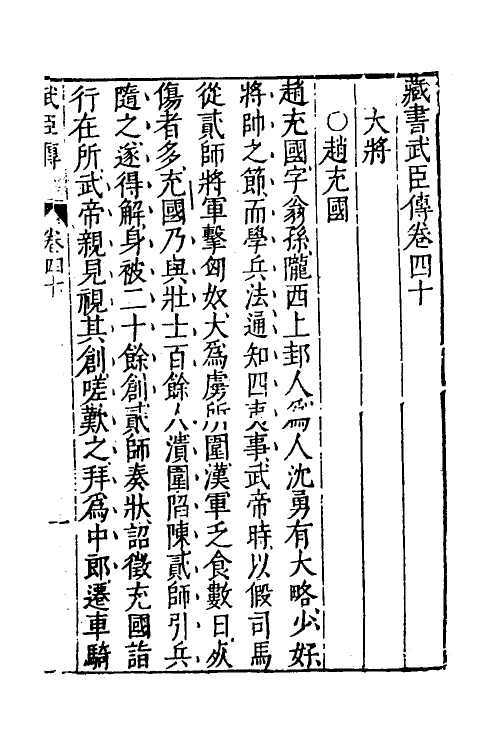 藏書武臣傳卷四十
大將
○趙充國
趙充國字翁孫隴西上邽人爲人沈勇有大略少好
將帥之節而學兵法通知四夷事武帝時以假司馬
從貳師將軍擊匈奴大爲虜所圍漢軍乏食數日死
傷者多充國乃與壯士百餘人潰圍陷陳貳師引兵
隨之遂得解身被二十餘創貳師奏狀詔徵充國詣
行在所武帝親見視其創嗟歎之拜爲中郎遷車騎
武臣傳 卷四十 一